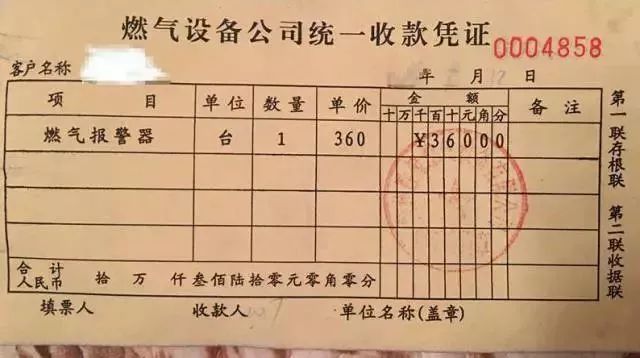 燃气设备公司统一收款凭证 0004858
客户名称 年 月 12 日
项 目 单位 数量 单价 金 额 备 注
十万千百十元角分
燃气报警器 台 1 360 ¥36000
合 计
人民币 拾 万 仟叁佰陆拾零元零角零分
填票人 收款人 单位名称(盖章)
第一联存根联 第二联收据联